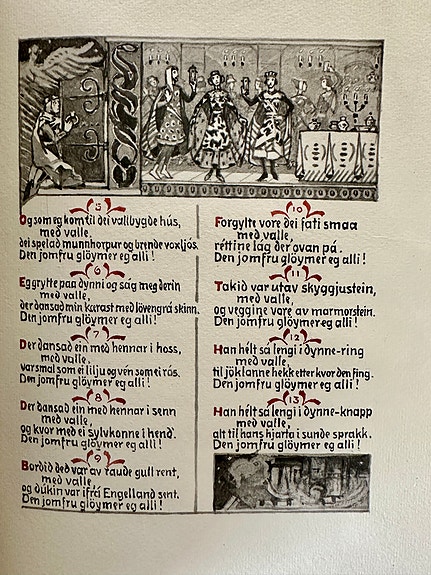 5
Og som eg kom til dei vallbygde hús,
med valle,
dei spelad munnhorpur og brende voxljós.
Den jomfru glöymer eg alli!
6
Eg grytte paa dynni og såg meg derin
med valle,
der dansad min kærast med lövengrå skinn.
Den jomfru glöymer eg alli!
7
Der dansad ein med hennar i hoss,
med valle,
var smal som ei lilju og vén som ei rós.
Den jomfru glöymer eg alli!
8
Der dansad ein med hennar i senn
med valle,
og kvor med ei sylvkonne i hend.
Den jomfru glöymer eg alli!
9
Bordid ded var av raude gull rent,
med valle,
og dúkin var ifrå Engelland sent.
Den jomfru glöymer eg alli!
10
Forgylte vore dei fati smaa
med valle,
rettine låg der ovan på.
Den jomfru glöymer eg alli!
11
Takid var utav skyggjustein,
med valle,
og veggine vare av marmorstein.
Den jomfru glöymer eg alli!
12
Han helt så lengi i dynne-ring
med valle,
til jöklanne hekk etter kvor den fing.
Den jomfru glöymer eg alli!
13
Han helt så lengi i dynne-knapp
med valle,
alt til hans hjarta i sunde sprakk.
Den jomfru glöymer eg alli!